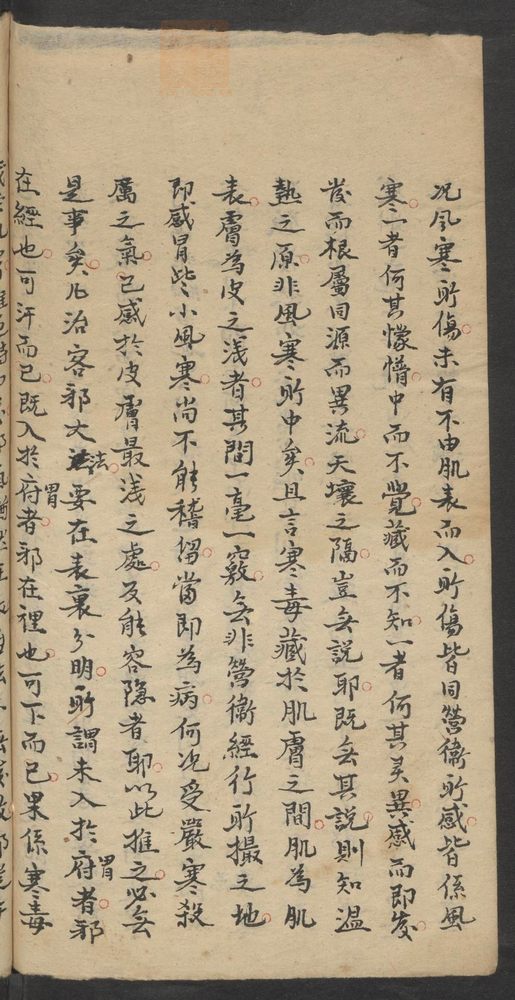 况風寒所傷未有不由肌表而入所傷皆同營衛所感皆係風
寒一者何其懞懵中而不覺藏而不知一者何其灵異感而即发
發而根屬同源而異流天壤之隔豈無説耶既無其説則知温
熱之原非風寒所中矣且言寒毒藏於肌膚之間肌為肌
表膚為皮之浅者其間一毫一竅無非營衛經行所撮之地
即感冒此小風寒尚不能稽留當即為病何况受嚴寒殺
厲之氣已感於皮膚最浅之處反能容隐者耶以此推之必無
是事矣凡治客邪大法要在表裏分明所謂未入於府者邪
在經也可汗而已既入於府者邪在裡也可下而已果係寒毒
胃
胃